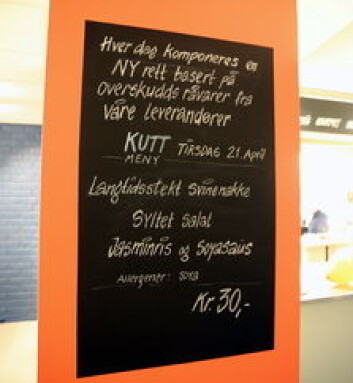 Hver dag komponeres en
NY rett basert på
overskudds råvarer fra
våre leverandører
KUTT TIRSDAG 21. April
MENY
Langtidsstekt svinenakke
Syltet salat
Jasminris og soyasaus
Allergener: SOYA
Kr. 30,-